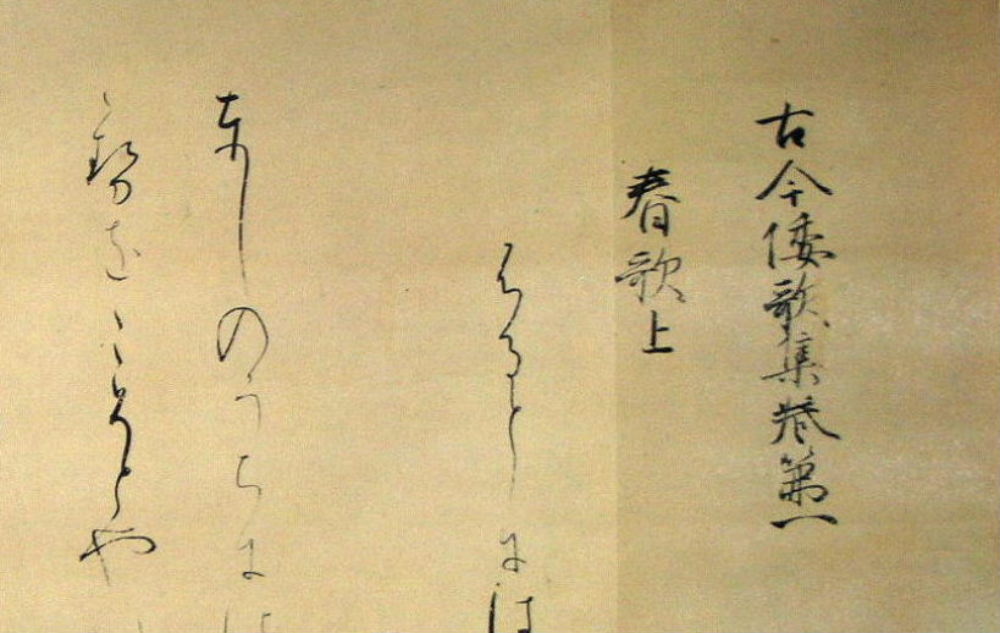 古今倭歌集巻第一
春歌上
ふるとしには
としのうちには
ゝせをこそとや